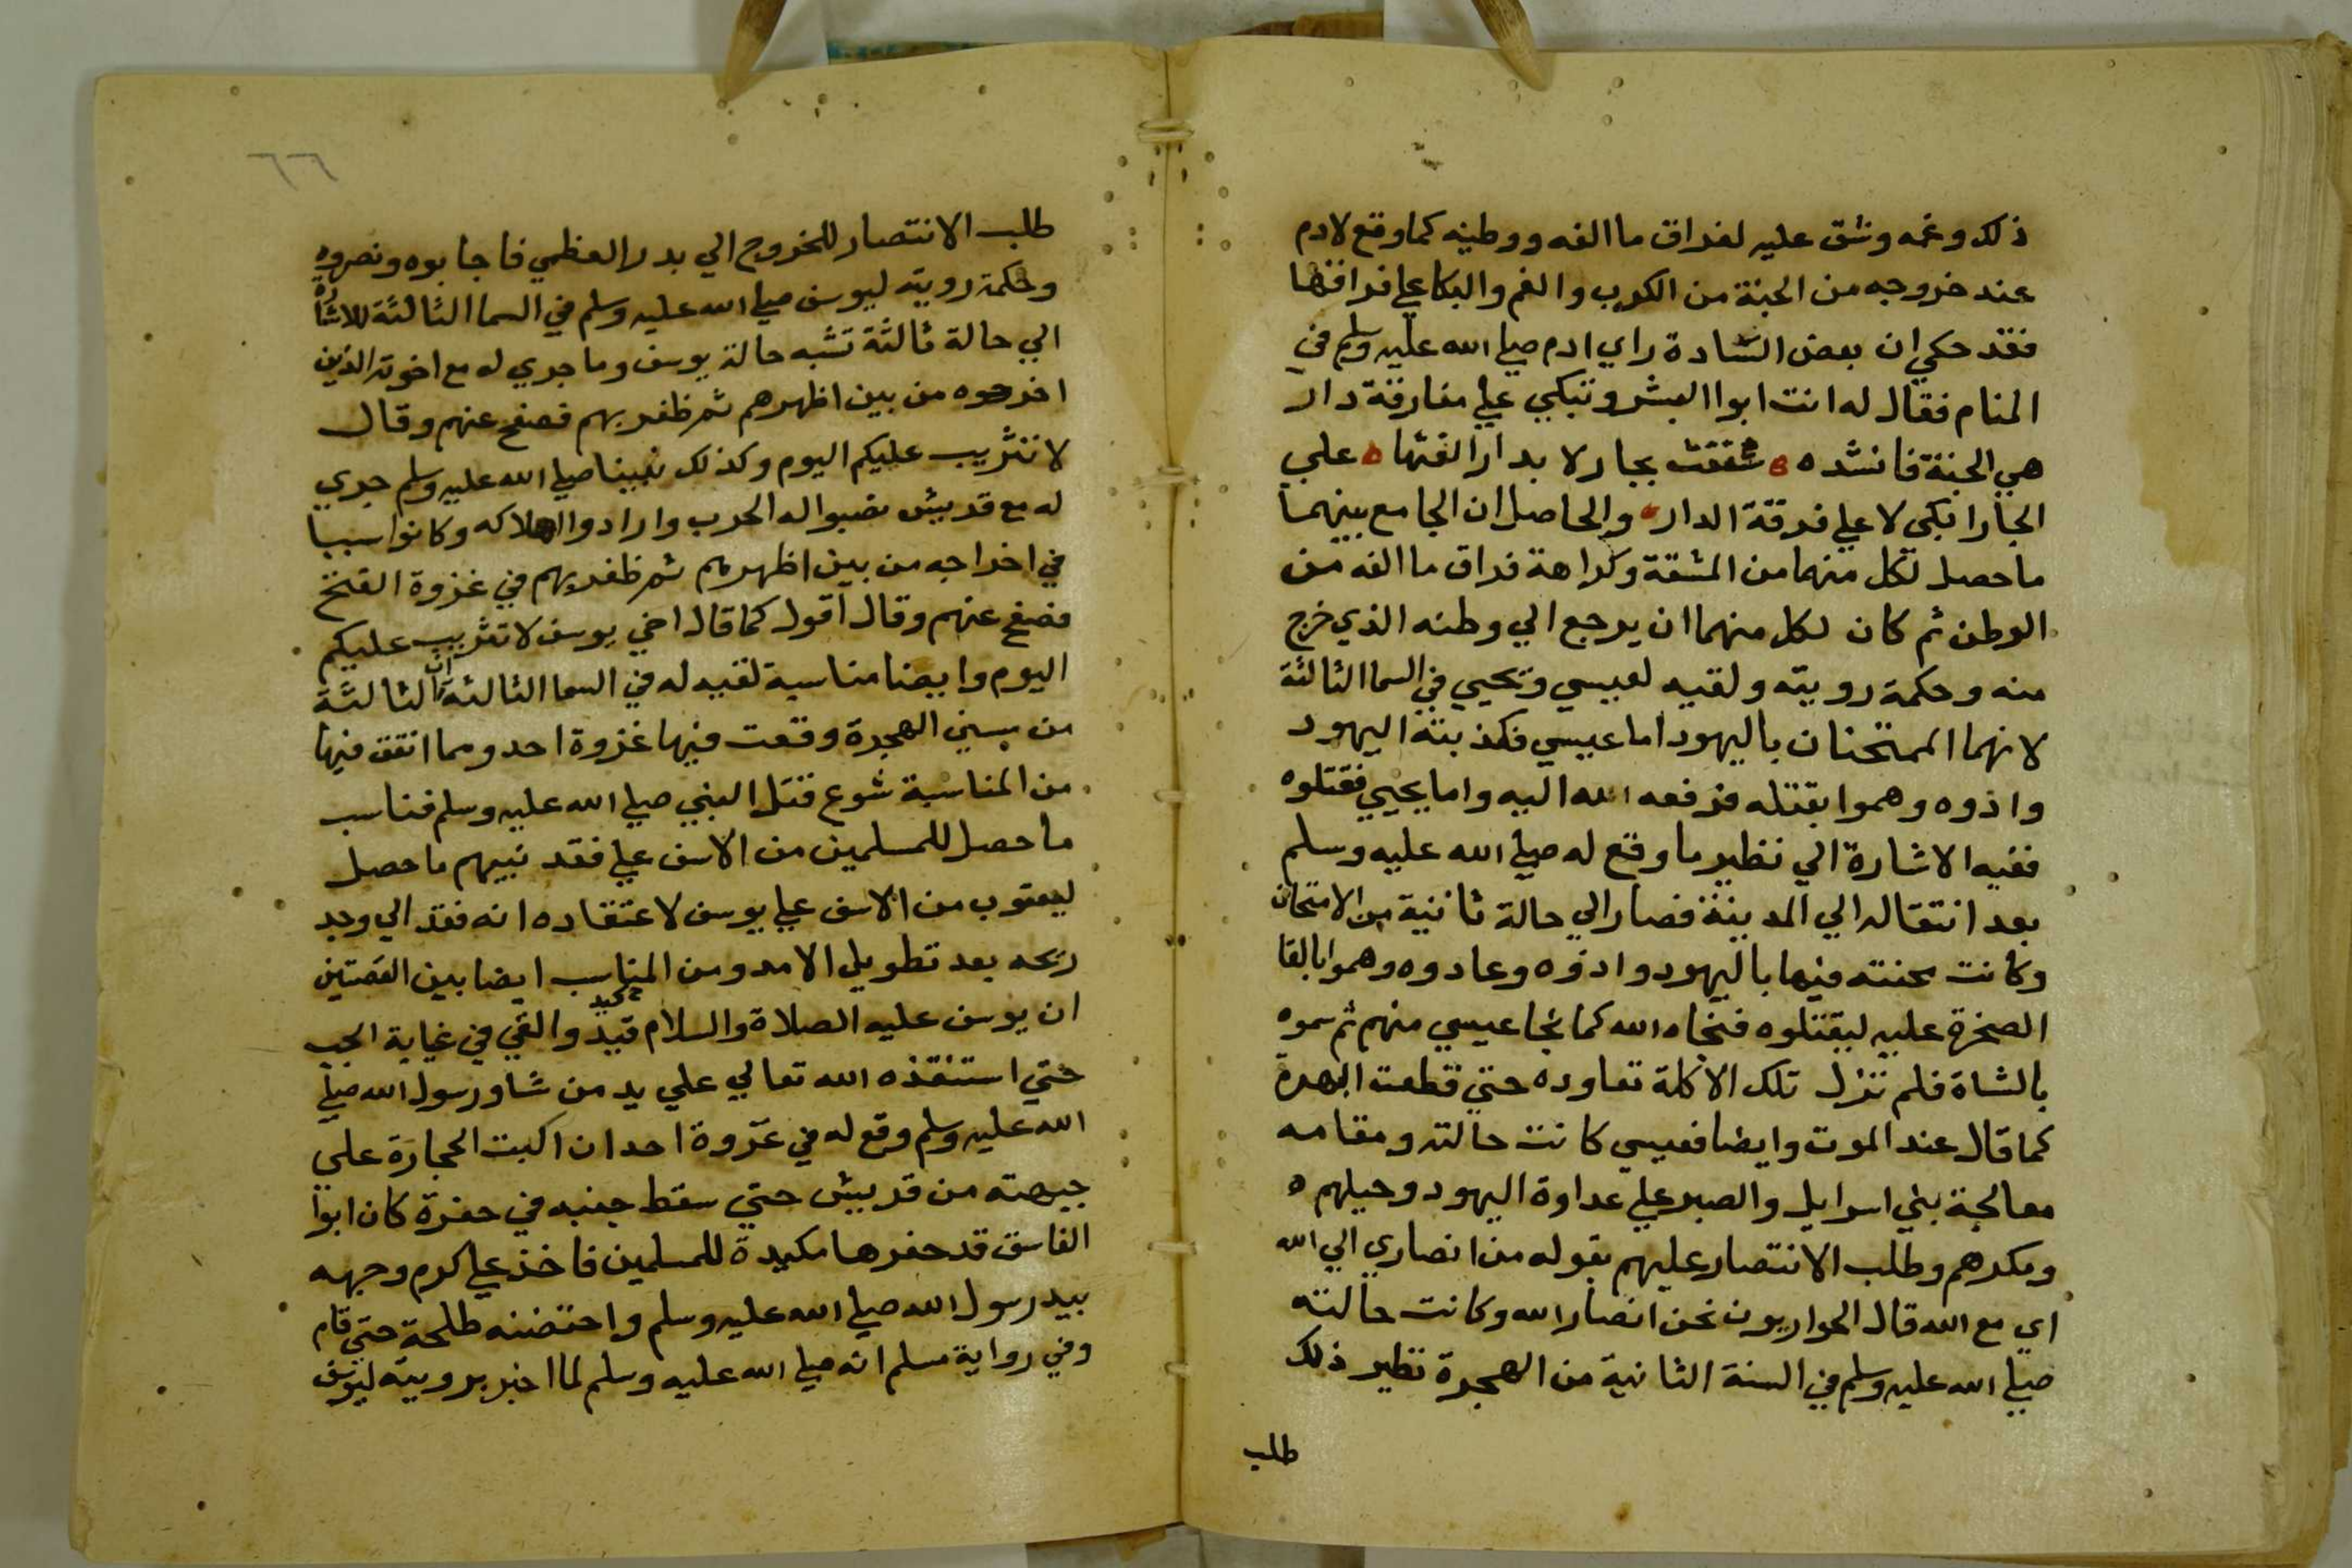 ذلك وغمه وشق عليه لفراق ما الفه ووطنه كما وقع لادم
عند خروجه من الجنة من الكرب والغم والبكا علي فراقها
فقد حكي ان بعض السادة راي ادم صلي الله عليه وسلم في
المنام فقال له انت ابوا البشر وتبكي علي مفارقة دار
هي الجنة فانشده شغفت بجار لا بدار الفتها علي
الجار ابكي لا علي فرقة الدار والحاصل ان الجامع بينهما
ما حصل لكل منهما من المشقة وكراهة فراق ما الفه من
الوطن ثم كان لكل منهما ان يرجع الي وطنه الذي خرج
منه وحكمة رويته ولقيه لعيسي ويحيي في السما الثالثة
لانهما الممتحنان باليهود اما عيسي فكذبته اليهود
واذوه وهموا بقتله فرفعه الله اليه واما يحيي فقتلوه
ففيه الاشارة الي نظير ما وقع له صلي الله عليه وسلم
بعد انتقاله الي المدينة فصار الي حالة ثانية من الامتحان
وكانت محنته فيها باليهود واذوه وعادوه وهموا بالقا
الصخرة عليه ليقتلوه فنجاه الله كما نجا عيسي منهم ثم سموه
بالشاة فلم تزل تلك الاكلة تعاوده حتي قطعت ابهره
كما قال عند الموت وايضا فعيسي كانت حالته ومقامه
معالجة بني اسرايل والصبر علي عداوة اليهود وحيلهم
ومكرهم وطلب الانتصار عليهم بقوله من انصاري الي الله
اي مع الله قال الحواريون نحن انصار الله وكانت حالته
صلي الله عليه وسلم في السنة الثانية من الهجرة نظير ذلك
طلب
٦٦
طلب الانتصار للخروج الي بدر العظمي فاجابوه ونصروه
وحكمة رويته ليوسف صلي الله عليه وسلم في السما الثالثة للاشارة
الي حالة ثالثة تشبه حالة يوسف وما جري له مع اخوته الذين
اخرجوه من بين اظهرهم ثم ظفر بهم فصفح عنهم وقال
لا تثريب عليكم اليوم وكذلك نبينا صلي الله عليه وسلم جري
له مع قريش نصبوا له الحرب وارادوا اهلاكه وكانوا سببا
في اخراجه من بين اظهرهم ثم ظفر بهم في غزوة الفتح
فصفح عنهم وقال اقول كما قال اخي يوسف لا تثريب عليكم
اليوم وايضا مناسبة لقيه له في السما الثالثة ان الثالثة
من سني الهجرة وقعت فيها غزوة احد ومما اتفق فيها
من المناسبة شوع قتل النبي صلي الله عليه وسلم فناسب
ما حصل للمسلمين من الاسف علي فقد نبيهم ما حصل
ليعقوب من الاسف علي يوسف لاعتقاده انه فقد الي وجد
ريحه بعد تطويل الامد ومن المناسب ايضا بين القصتين
ان يوسف عليه الصلاة والسلام قيد والقي في غيابة الجب
حتي استنقذه الله تعالي علي يد من شا ورسول الله صلي
الله عليه وسلم وقع له في غزوة احد ان اكبت الحجارة علي
جبهته من قريش حتي سقط جنبه في حفرة كان ابوا
الفاسق قد حفرها مكيدة للمسلمين فاخذ علي كرم وجهه
بيد رسول الله صلي الله عليه وسلم واحتضنه طلحة حتي قام
وفي رواية مسلم انه صلي الله عليه وسلم لما اخبر برويته ليوسف